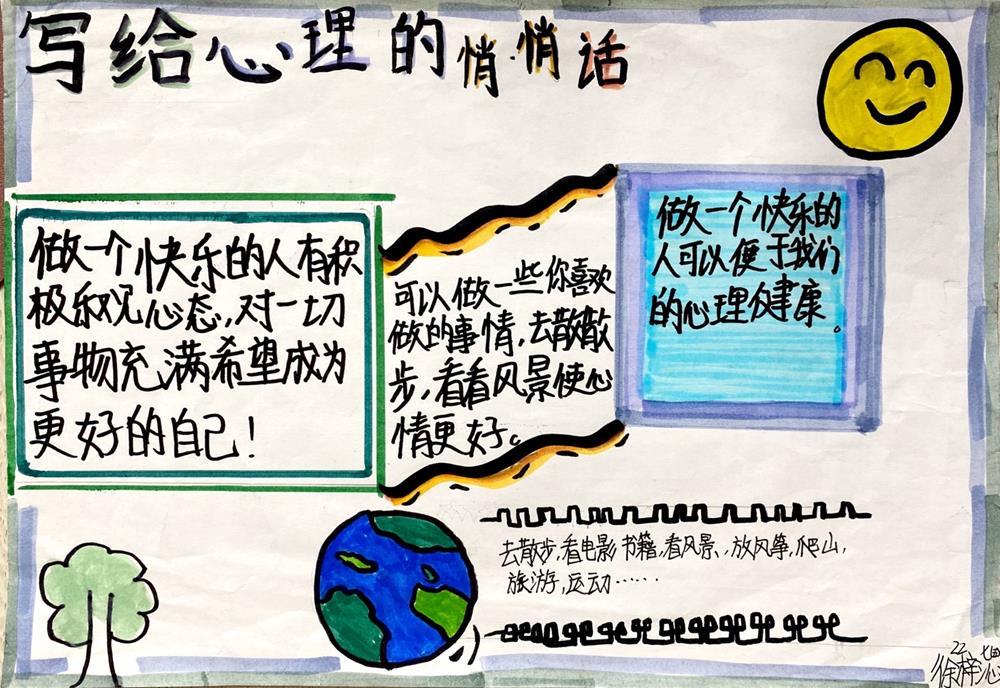 写给心理的悄悄话
做一个快乐的人有积
极乐观心态,对一切
事物充满希望成为
更好的自己!
可以做一些你喜欢
做的事情,去散散
步,看看风景使心
情更好。
做一个快乐的
人可以便于我们
的心理健康。
去散步,看电影书籍,看风景、放风筝,爬山,
旅游,运动……
22
徐梓